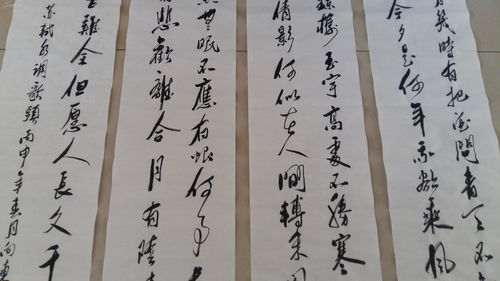 幾時有把酒問青天不
今夕是何年我欲乘風
瓊樓玉宇高處不勝寒
清影何似在人間轉朱
無眠不應有恨何事長
悲歡離合月有陰
難全但愿人長久千
蘇軾水調歌頭丙申年春月向東